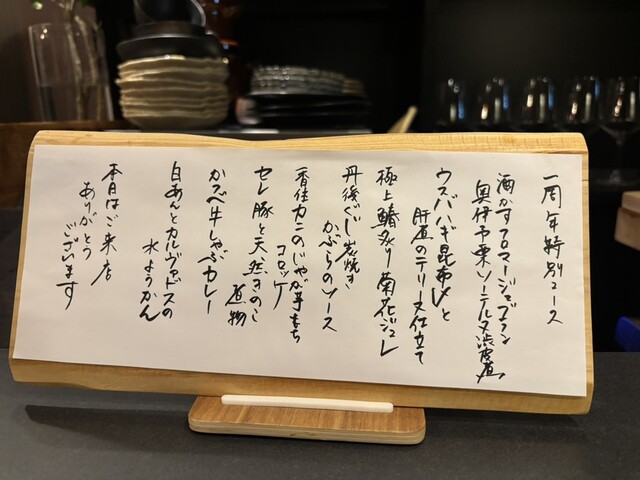 一周年特別コース
酒かすフロマージュブラン
奥伊予栗ソーテルヌ渋皮煮
ウスバハギ昆布〆と
肝醤のテリーヌ仕立て
極上鰆炙り菊花ジュレ
丹後ぐじ炭焼き
かぶらのソース
香住カニのじゃが芋もち
コロッケ
セレ豚と天然きのこ
煮物
かつべ牛しゃぶカレー
白あんとカルヴァドスの
水ようかん
本日はご来店
ありがとう
ございます